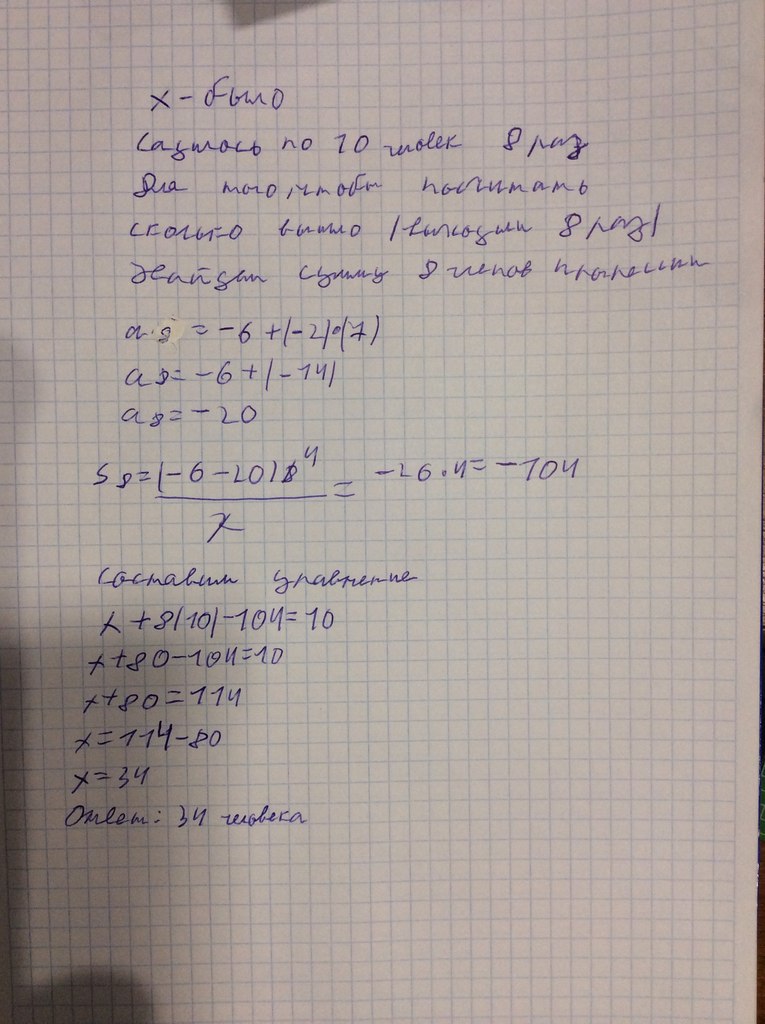 x - было
Садилось по 10 человек 8 раз
Для того, чтобы посчитать
сколько вышло (выходили 8 раз)
Найдем сумму 8 членов прогрессии
a8 = -6 + (-2)·(7)
a8 = -6 + (-14)
a8 = -20
S8 = (-6-20)8 4 / 2 = -26·4 = -104
Составим уравнение
x + 8(10) - 104 = 10
x + 80 - 104 = 10
x + 80 = 114
x = 114 - 80
x = 34
Ответ: 34 человека